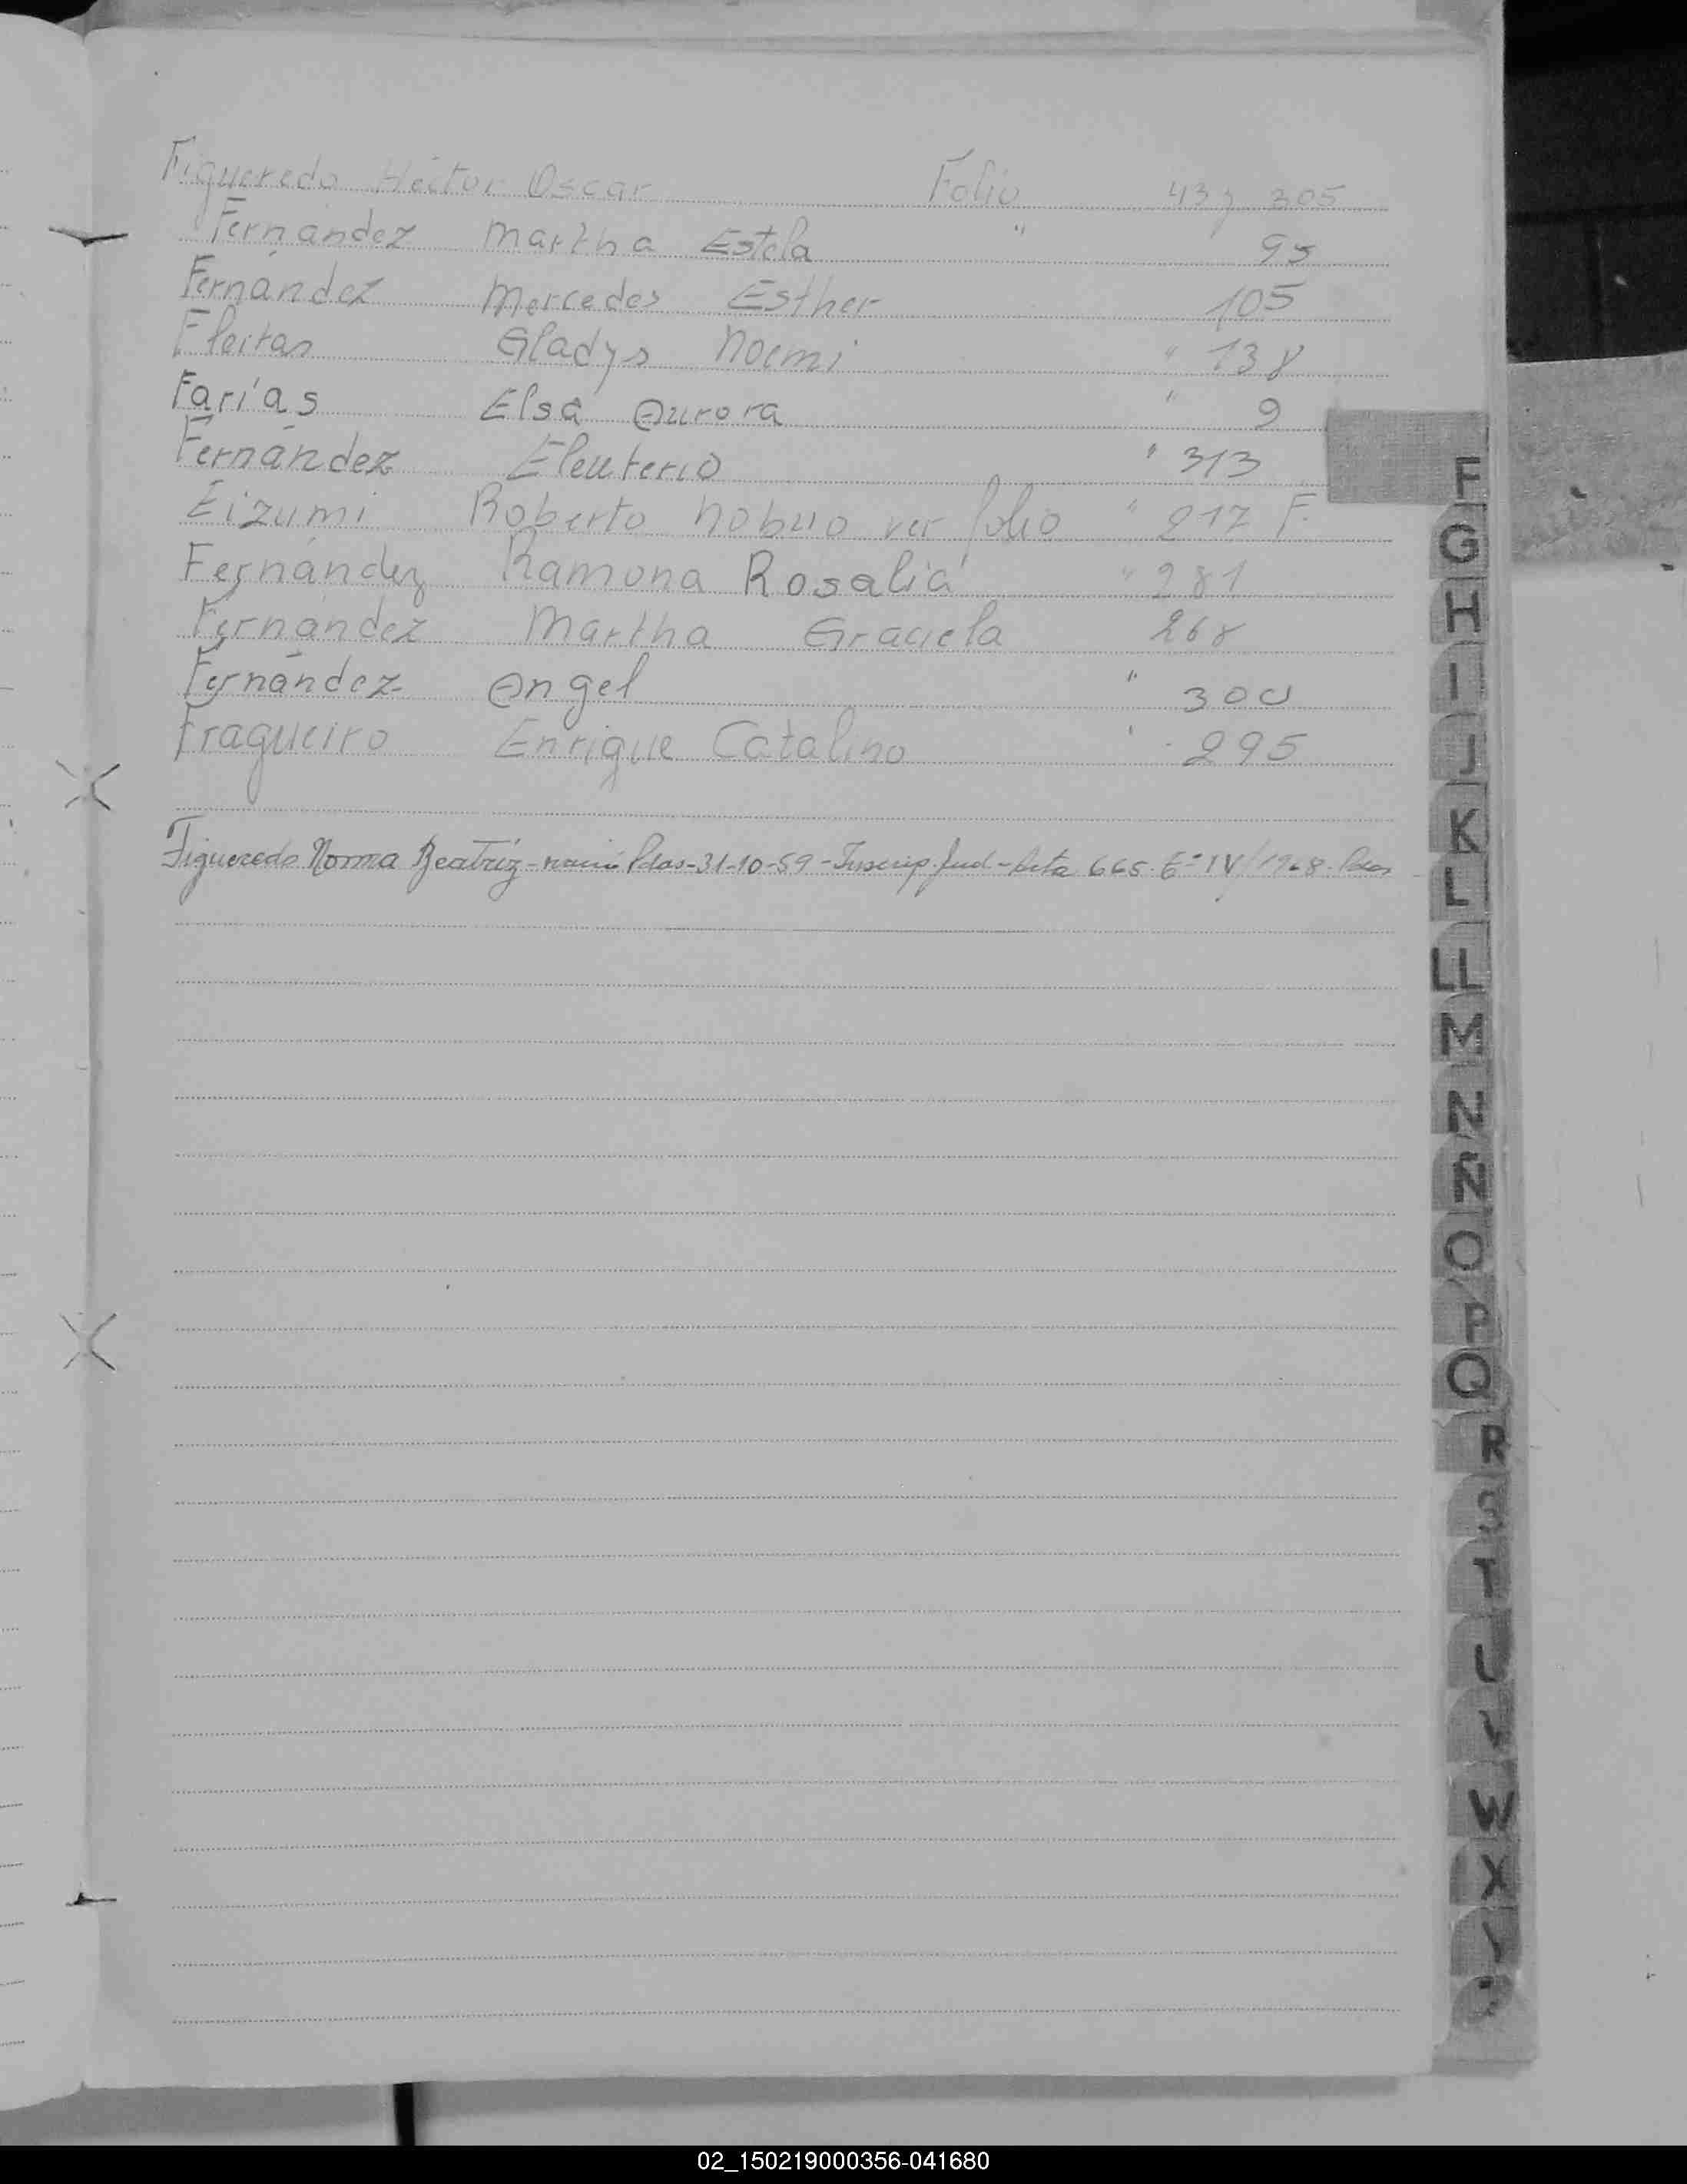 Figueredo Héctor Oscar Folio 43 y 305
Fernández Martha Estela " 95
Fernández Mercedes Esther 105
Fleitas Gladys Noemi " 138
Farías Elsa Aurora " 9
Fernández Eleuterio " 313
Eizumi Roberto Nobuo ver folio " 217 F.
Fernández Ramona Rosalia " 281
Fernández Martha Graciela 268
Fernández Angel " 300
Fragueiro Enrique Catalino " 295
Figueredo Norma Beatriz - nació Pdas - 31-10-59 - Inscrip. Jud - Acta 665 Tº IV/1968. Pdas
F
G
H
I
J
K
L
LL
M
N
Ñ
O
P
Q
R
S
T
U
V
W
X
Y
02_150219000356-041680